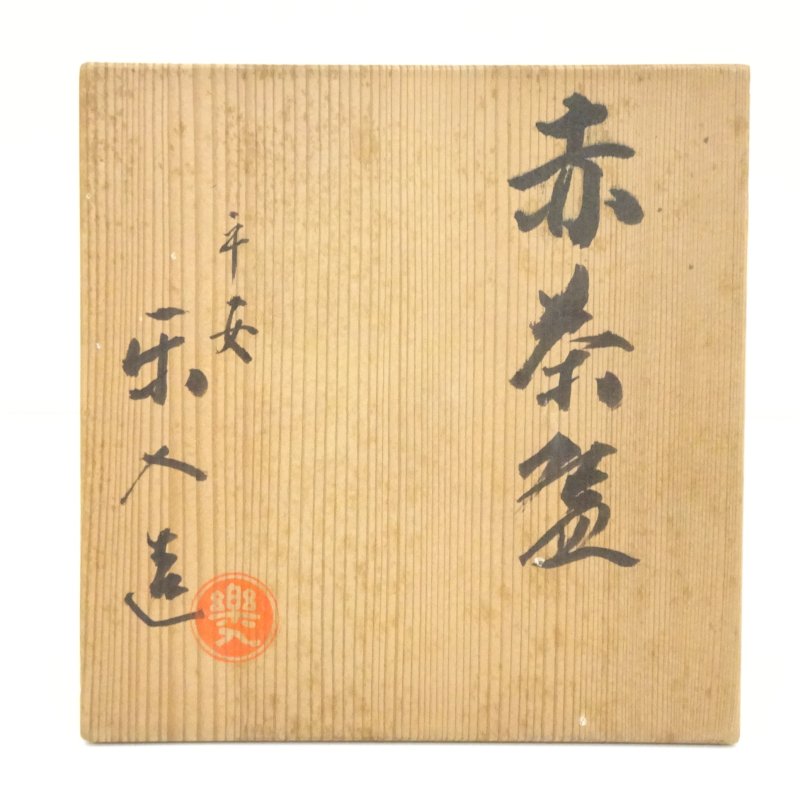 赤茶盌
平安
楽入造
樂入